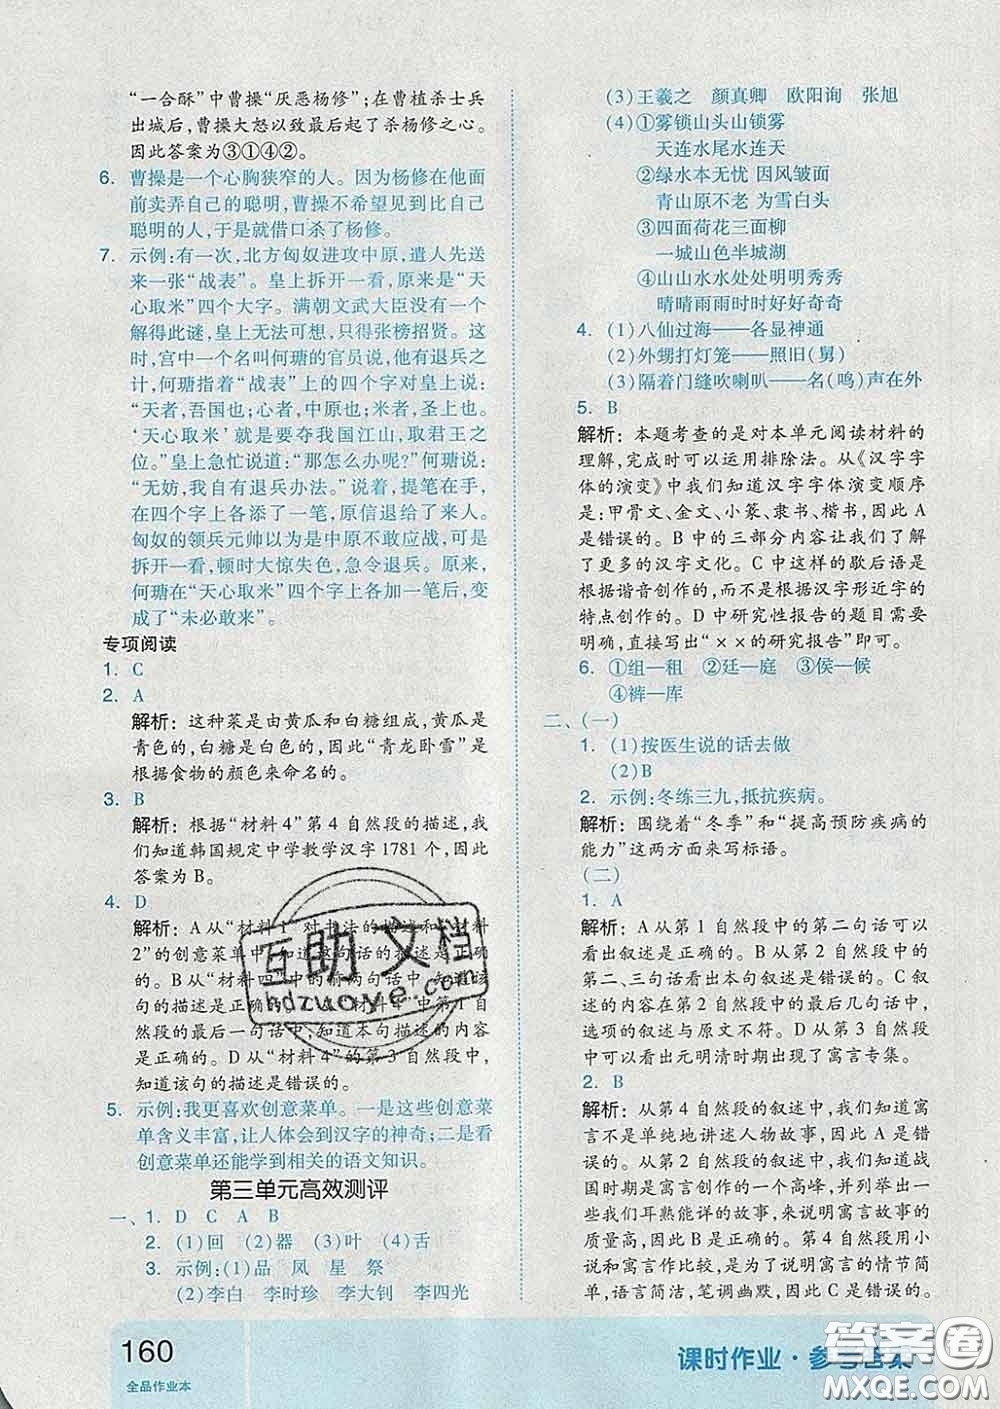 “一合酥”中曹操“厌恶杨修”;在曹植杀士兵
出城后,曹操大怒以致最后起了杀杨修之心。
因此答案为③①④②。
6. 曹操是一个心胸狭窄的人。因为杨修在他面
前卖弄自己的聪明,曹操不希望见到比自己
聪明的人,于是就借口杀了杨修。
7. 示例:有一次,北方匈奴要进攻中原,遣人先送
来一张“战表”。皇上拆开一看,原来是“天
心取米”四个大字。满朝文武大臣没有一个
解得此谜,皇上无法可想,只得张榜招贤。这
时,宫中一个名叫何瑭的官员说,他有退兵之
计,何瑭指着“战表”上的四个字对皇上说:
“天者,吾国也;心者,中原也;米者,圣上也。
‘天心取米’就是要夺我国江山,取君王之
位。”皇上急忙说道:“那怎么办呢?”何瑭说:
“无妨,我自有退兵办法。”说着,提笔在手,
在四个字上各添了一笔,原信退给了来人。
匈奴的领兵元帅以为中原不敢应战,可是
拆开一看,顿时大惊失色,急令退兵。原来,
何瑭在“天心取米”四个字上各加一笔后,变
成了“未必敢来”。
专项阅读
1. C
2. A
解析:这种菜是由黄瓜和白糖组成,黄瓜是
青色的,白糖是白色的,因此“青龙卧雪”是
根据食物的颜色来命名的。
3. B
解析:根据“材料4”第4自然段的描述,我
们知道韩国规定中学教学汉字1781个,因此
答案为B。
4. D
解析:A从“材料1”对书法的描述和“材料
2”的创意菜单中,知道这句话的描述是正确
的。B从“材料四”中的前两句话中,知道该
句的描述是正确的。C从“材料4”中第1自
然段的最后一句话中,知道本句描述的内容
是正确的。D从“材料4”的第3自然段中,
知道该句的描述是错误的。
5. 示例:我更喜欢创意菜单。一是这些创意菜
单含义丰富,让人体会到汉字的神奇;二是看
创意菜单还能学到相关的语文知识。
第三单元高效测评
一、1. D C A B
2. (1)回 (2)器 (3)叶 (4)舌
3. 示例:(1)品 凤 星 祭
(2)李白 李时珍 李大钊 李四光
(3)王羲之 颜真卿 欧阳询 张旭
(4)①雾锁山头山锁雾
天连水尾水连天
②绿水本无忧 因风皱面
青山原不老 为雪白头
③四面荷花三面柳
一城山色半城湖
④山山水水处处明明秀秀
晴晴雨雨时时好好奇奇
4. (1)八仙过海——各显神通
(2)外甥打灯笼——照旧(舅)
(3)隔着门缝吹喇叭——名(鸣)声在外
5. B
解析:本题考查的是对本单元阅读材料的
理解,完成时可以运用排除法。从《汉字字
体的演变》中我们知道汉字字体演变顺序
是:甲骨文、金文、小篆、隶书、楷书,因此A
是错误的。B中的三部分内容让我们了解
了更多的汉字文化。C中这样的歇后语是
根据谐音创作的,而不是根据汉字形近字的
特点创作的。D中研究性报告的题目需要
明确,直接写出“××的研究报告”即可。
6. ①组—租 ②廷—庭 ③侯—候
④裤—库
二、(一)
1. (1)按医生说的话去做
(2)B
2. 示例:冬练三九,抵抗疾病。
解析:围绕着“冬季”和“提高预防疾病的
能力”这两方面来写标语。
(二)
1. A
解析:A从第1自然段中的第二句话可以
看出叙述是正确的。B从第2自然段中的
第二、三句话看出本句叙述是错误的。C叙
述的内容在第2自然段中的最后几句话中,
选项的叙述与原文不符。D从第3自然段
中可以看出元明清时期出现了寓言专集。
2. B
解析:从第4自然段的叙述中,我们知道寓
言不是单纯地讲述人物故事,因此A是错
误的。从第2自然段的叙述中,我们知道战
国时期是寓言创作的一个高峰,并列举出一
些我们耳熟能详的故事,来说明寓言故事的
质量高,因此B是正确的。第4自然段用小
说和寓言作比较,是为了说明寓言的情节简
单,语言简洁,笔调幽默,因此C是错误的。
互助文档
hdzuoye.com
160
全品作业本
课时作业·参考答案
答案圈
MXQE.COM